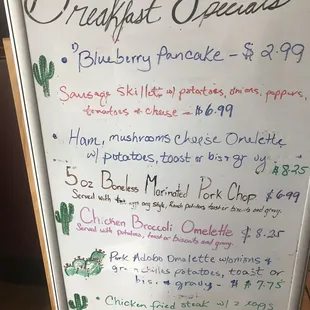 Breakfast Specials
Blueberry Pancake - $2.99
Sausage Skillet w/ potatoes, onions, peppers,
tomatoes & cheese - $6.99
Ham, mushrooms cheese Omelette
w/ potatoes, toast or bis & gravy $8.25
5oz Boneless Marinated Pork Chop $6.99
Served with two eggs any style, Ranch potatoes toast or biscuits and gravy.
Chicken Broccoli Omelette $8.25
Served with potatoes, toast or biscuits and gravy.
Pork Adobo Omelette w/onions &
green chiles potatoes, toast or
bis & gravy - $7.75
Chicken fried steak w/ 2 eggs